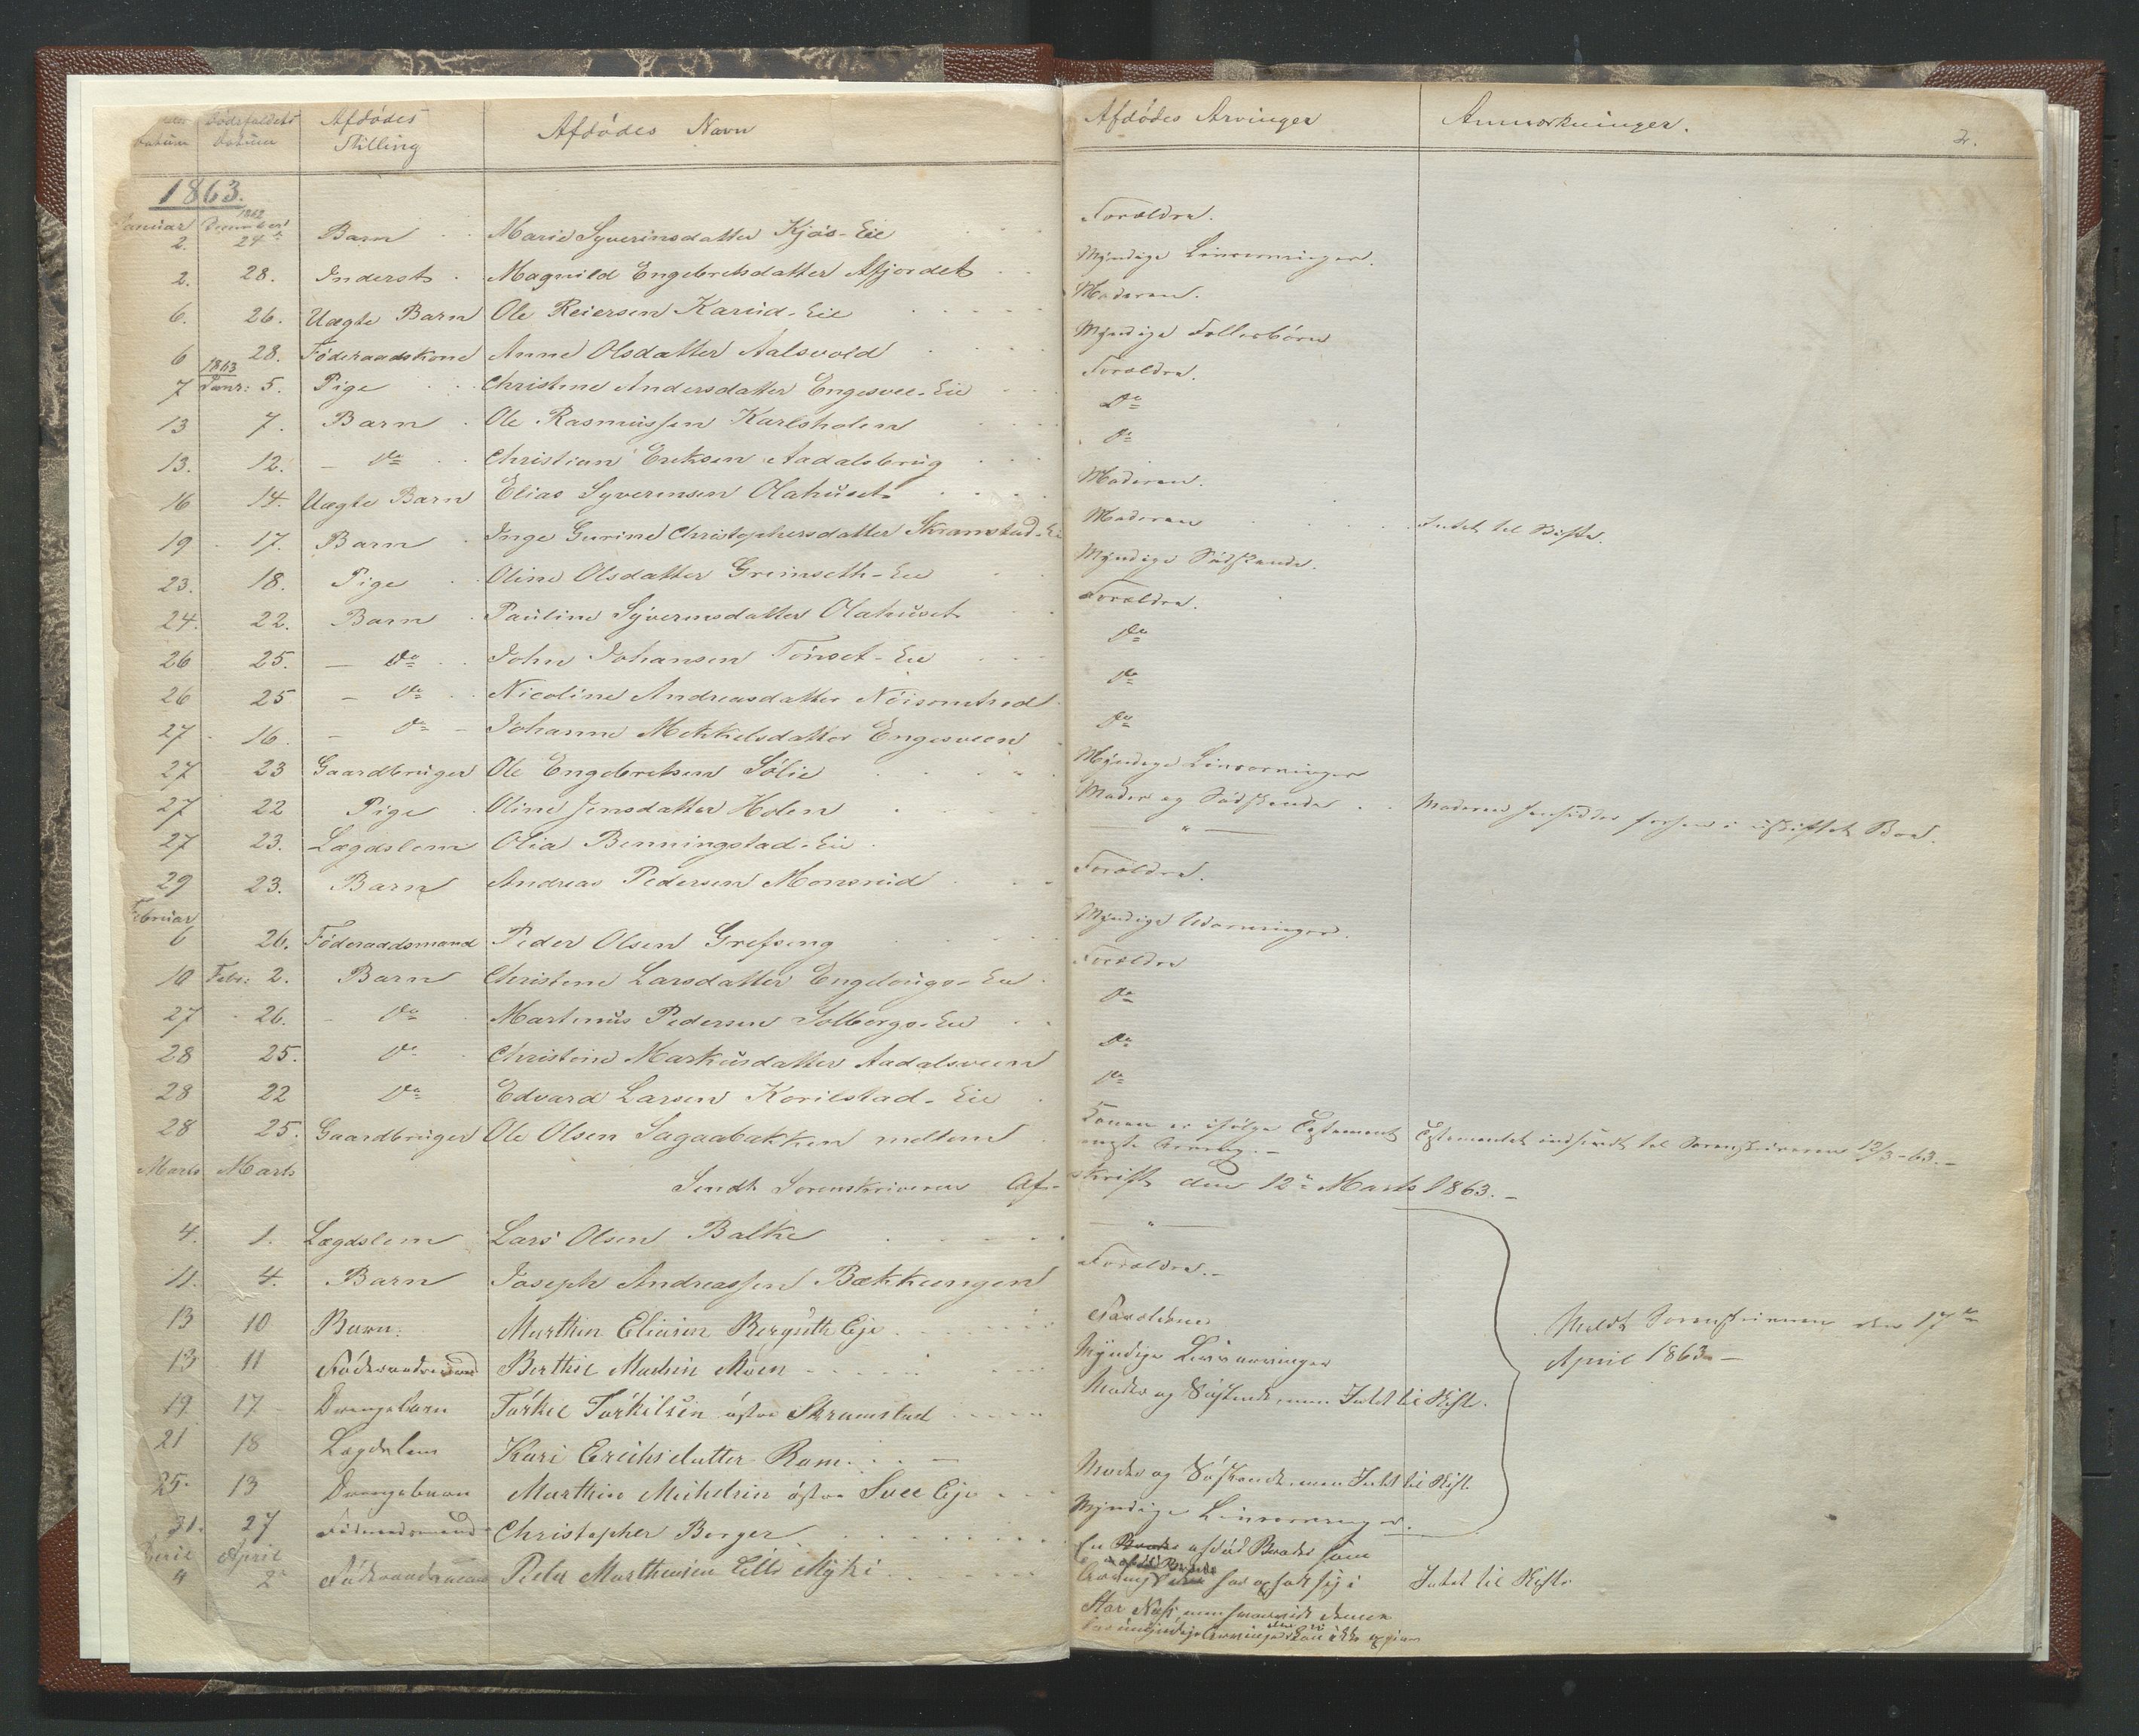 datum Dödsfaldets datum Afdödes Stilling Afdödes Navn Afdödes Arvinger Anmærkninger. 2.
1863.
Januar December 1862
2. 24 Barn Marie Syverinsdatter Kjös-Eie Forældre.
2. 28. Inderst Magnild Engebretsdatter Afjordet Myndige Livsarvinger.
6. 26. Uægte Barn Ole Reiersen Karud-Eie Moderen.
6 28. Föderaadskone Anne Olsdatter Aalsvold Myndige Fællesbörn
1863
7 Janr: 5. Pige Christine Andersdatter Engesvee-Eie Forældre.
13 7. Barn Ole Rasmussen Karlsholen Do
13. 12. – Do Christian Eriksen Aadalsbrug Do
16 14. Uægte Barn Elias Syverinsen Olahuset Moderen.
19 17. Barn Inge Gurine Christophersdatter Skramstad-Ei Moderen Intet til Skifte.
23. 18. Pige Oline Olsdatter Grimseth-Eie Myndige Södskende.
24. 22. Barn Pauline Syverinsdatter Olahuset Forældre.
26 25. – Do John Johansen Tönset-Eie Do
26 25 – Do Nicoline Andreasdatter Nöisomhed Do
27 16. – Do – Johanne Mekkelsdatter Engesveen Do
27 23 Gaardbruger Ole Engebretsen Sölie Myndige Livsarvinger
27 22 Pige Oline Jensdatter Holen Moder og Södskende Moderen hensidder forhen i uskiftet Boe.
27 23. Lægdslem Olia Benningstad-Eie — " —
29 23. Barn Andreas Pedersen Monsrud Forældre.
Februar
6 26. Föderaadsmand Peder Olsen Grefseng Myndige Udarvinger.
10 Febr: 2. Barn Christine Larsdatter Engelaugs-Eie Forældre
27 26. – Do Martinus Pedersen Solbergs-Eie Do
28 25. Do Christine Markusdatter Aadalsveen Do
28 22 Do Edvard Larsen Korilstad-Eie Do
28 25. Gaardbruger Ole Olsen Sagaabakken mellem Konen er ifölge Testament Testamentet indsendt til Sorenskriveren 12/3-63.–
eneste Arving.–
Marts Marts Sendt Sorenskriveren Afskrift den 12te Marts 1863.–
4. 1. Lægdslem Lars Olsen Balke — " —
11. 4. Barn Joseph Andreassen Bækkungen Forældre.–
13 10 Barn. Marthin Eliasen Bergseth Eje Forældrene Meldt Sorenskriveren den 17de
13 11 Föderaadsmand Berthil Madsen Moen Myndige Livsarvinger April 1863 –
19 17 Drengebarn Torkel Torkilsen östre Skramstad Moder og Södskende, men Intet til Skifte.
21 18 Lægdslem Kari Erichsdatter Ram. –
25. 13 Drengebarn Marthin Mikelsen östre Svee Eje Moder og Södskende, men Intet til Skifte.
31. 27 Föderaadsmand Christopher Berger Myndige Livsarvinger.
April April
4 2 Föderaadsmand Peder Marthinsen Lille Myké En afdöd Broder som
har opholdt sig i Intet til Skifte
Stor